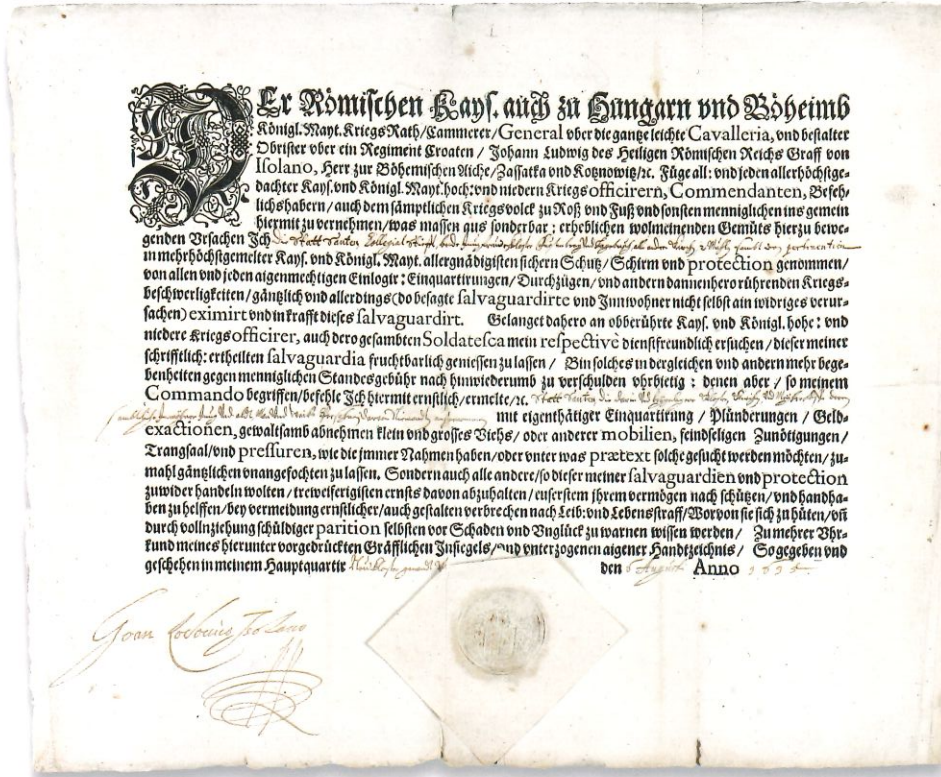 DEr Römischen Kays. auch zu Hungarn vnd Böheimb
Königl. Mayt. Kriegs Rath / Cammerer / General vber die gantze leichte Cavalleria, vnd bestalter
Obrister vber ein Regiment Croaten / Johann Ludwig des Heiligen Römischen Reichs Graff von
Isolano, Herr zur Böhemischen Aiche / Zassatka vnd Kotznowitz / ꝛc. Füge all: vnd jeden allerhöchstge-
dachter Kays. vnd Königl. Mayt. hoch: vnd niedern Kriegs officirern, Commendanten, Befeh-
lichshabern / auch dem sämptlichen Kriegsvolck zu Roß vnd Fuß vnd sonsten menniglichen ins gemein
hiermit zu vernehmen / was massen aus sonderbar: erheblichen wolmeinenden Gemüts hierzu bewe-
genden Vrsachen Ich die Statt
in mehrhöchstgemelter Kays. vnd Königl. Mayt. allergnädigisten sichern Schutz / Schirm vnd protection genommen /
von allen vnd jeden aigenmechtigen Einlogir: Einquartirungen / Durchzügen / vnd andern dannenhero rührenden Kriegs-
beschwerligkeiten / gäntzlich vnd allerdings (do besagte salvaguardirte vnd Innwohner nicht selbst ain widriges verur-
sachen) eximirt vnd in krafft dieses salvaguardirt. Gelanget dahero an obberührte Kays. vnd Königl. hohe: vnd
niedere Kriegs officirer, auch dero gesambten Soldatesca mein respectivè dienstfreundlich ersuchen / dieser meiner
schrifftlich: ertheilten salvaguardia fruchtbarlich geniessen zu lassen / Bin solches in dergleichen vnd andern mehr bege-
benheiten gegen menniglichen Standesgebühr nach hinwiederumb zu verschulden vhrbietig: denen aber / so meinem
Commando begriffen / befehle Ich hiermit ernstlich / ermelte / ꝛc. Statt
mit eigenthätiger Einquartirung / Plünderungen / Geld-
exactionen, gewaltsamb abnehmen klein vnd grosses Viehs / oder anderer mobilien, feindseligen Zunötigungen /
Trangsaal / vnd pressuren, wie die jmmer Nahmen haben / oder vnter was prætext solche gesucht werden möchten / zu-
mahl gäntzlichen vnangefochten zu lassen. Sondern auch alle andere / so dieser meiner salvaguardien vnd protection
zuwider handeln wolten / treweiferigisten ernsts davon abzuhalten / eusserstem jhrem vermögen nach schützen / vnd handha-
ben zu helffen / bey vermeidung ernstlicher / auch gestalten verbrechen nach Leib: vnd Lebensstraff / Worvon sie sich zu hüten / vñ
durch vollnziehung schüldiger parition selbsten vor Schaden vnd Vnglück zu warnen wissen werden / Zu mehrer Vhr-
kund meines hierunter vorgedrückten Gräfflichen Insiegels / vnd vnterzogenen aigener Handtzeichnis / So gegeben vnd
geschehen in meinem Hauptquartir den Augusti Anno
Goan Lodovicus Isolano